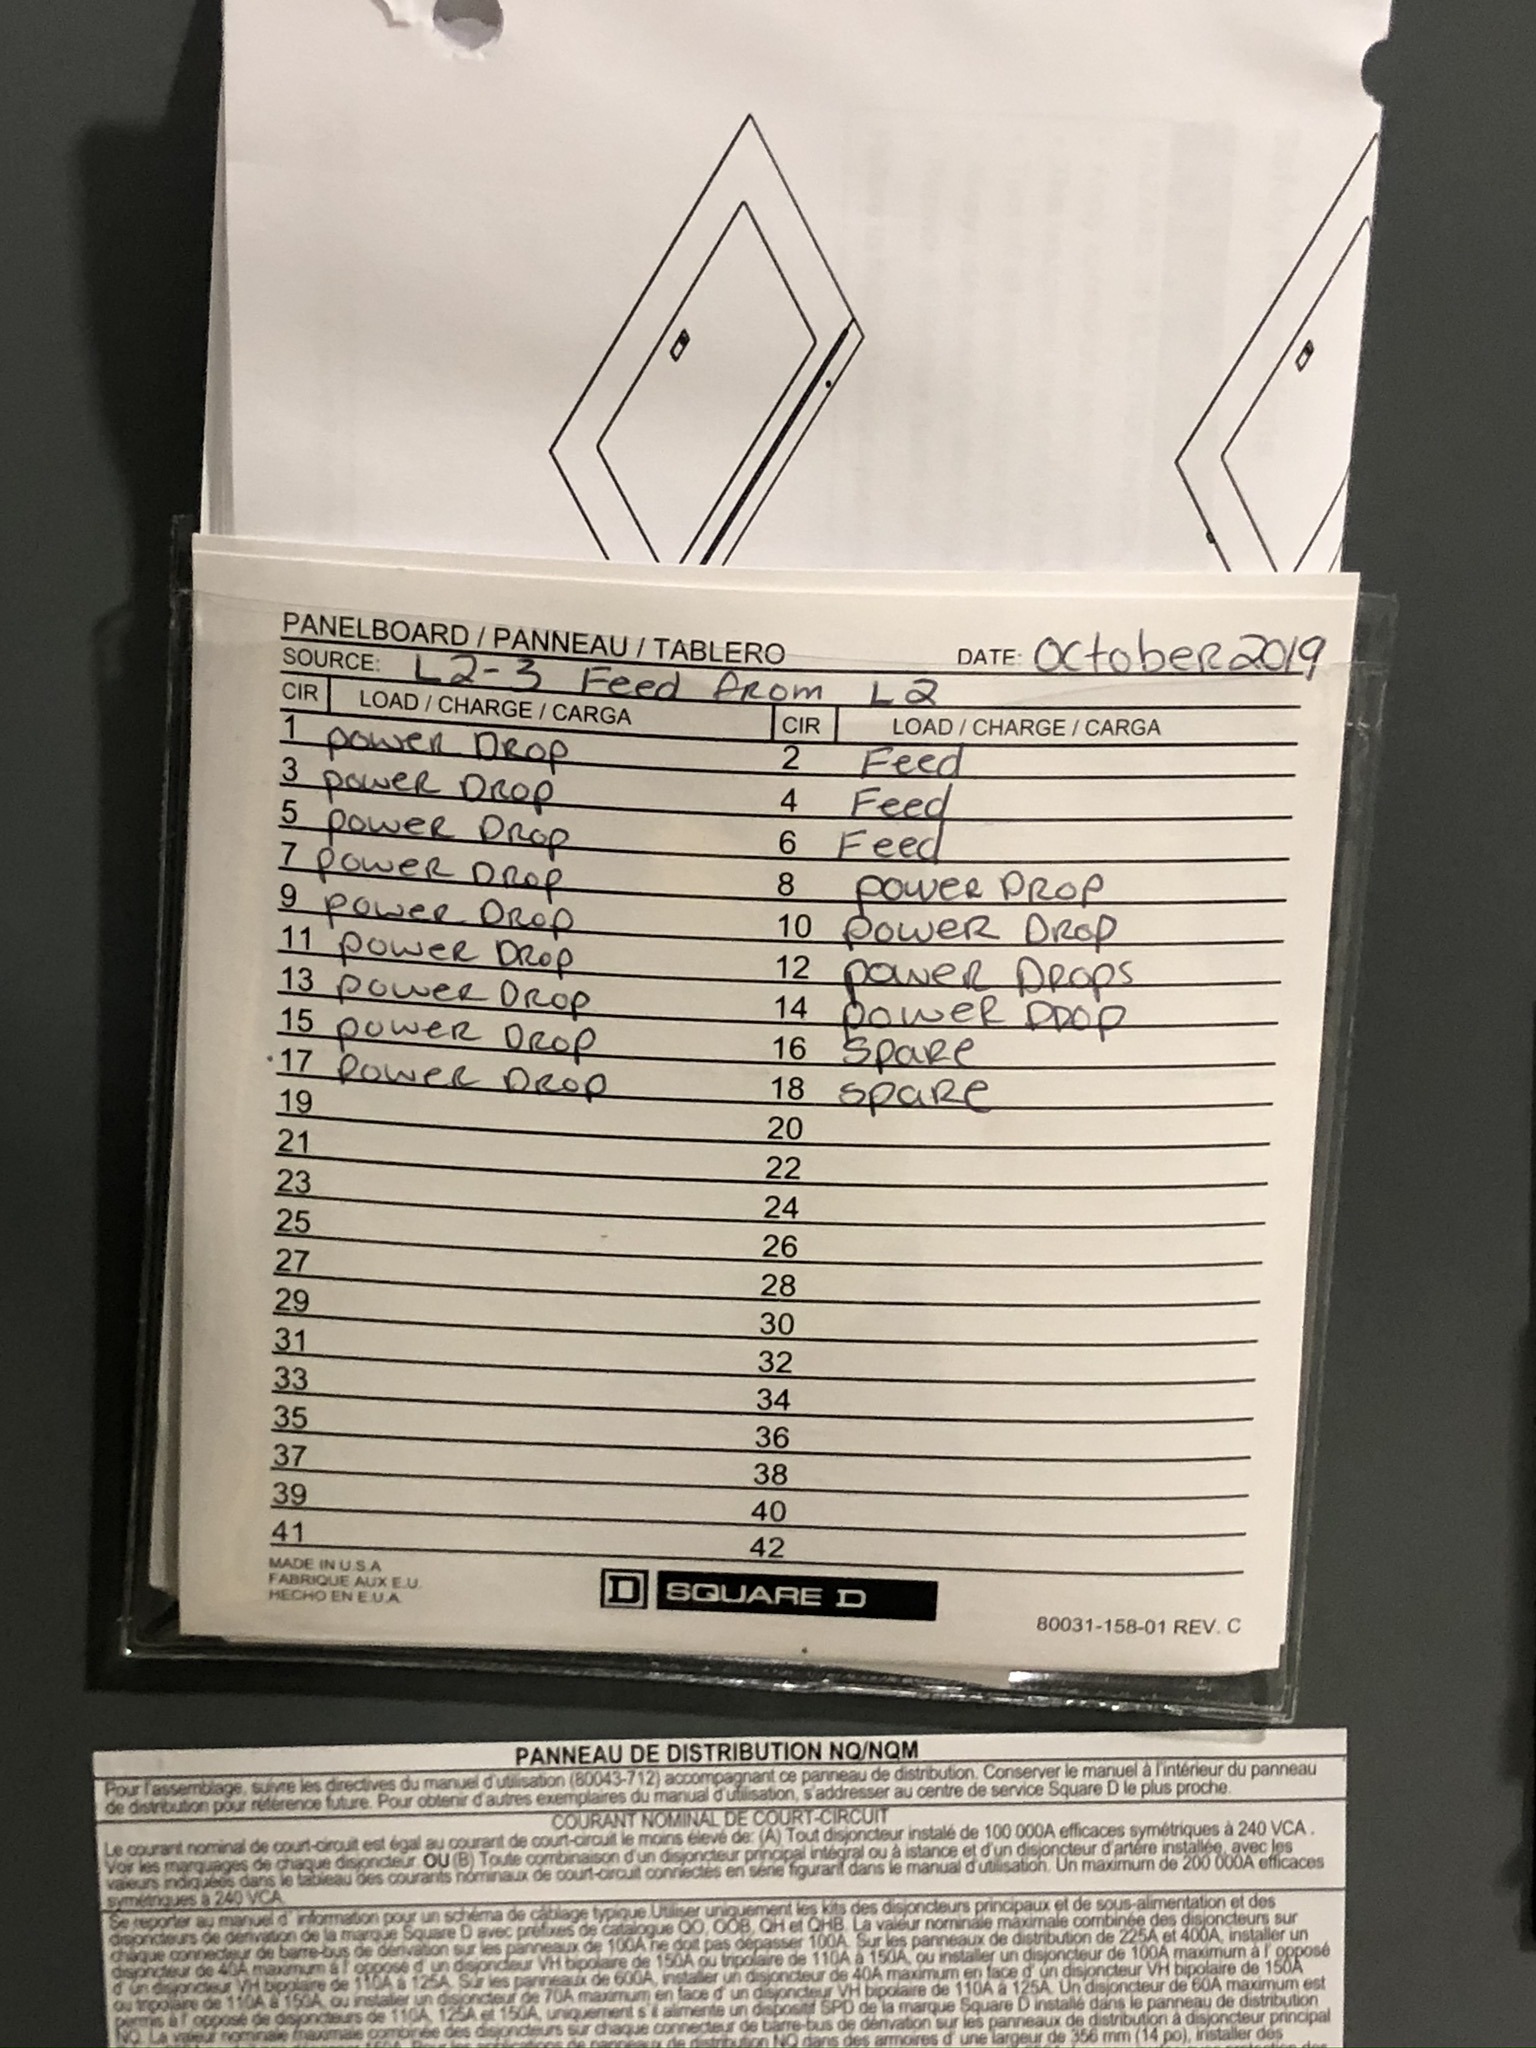 PANELBOARD / PANNEAU / TABLERO DATE: October 2019
SOURCE: L2-3 Feed from L2
CIR LOAD / CHARGE / CARGA CIR LOAD / CHARGE / CARGA
1 power Drop 2 Feed
3 power Drop 4 Feed
5 power Drop 6 Feed
7 power Drop 8 power Drop
9 power Drop 10 power Drop
11 power Drop 12 power Drops
13 power Drop 14 power DDOP
15 power Drop 16 spare
17 power Drop 18 spare
19 20
21 22
23 24
25 26
27 28
29 30
31 32
33 34
35 36
37 38
39 40
41 42
MADE IN U.S.A
FABRIQUE AUX E.U.
HECHO EN E.U.A.
D SQUARE D
80031-158-01 REV. C
PANNEAU DE DISTRIBUTION NQ/NQM
Pour l'assemblage, suivre les directives du manuel d'utilisation (80043-712) accompagnant ce panneau de distribution. Conserver le manuel à l'intérieur du panneau
de distribution pour référence future. Pour obtenir d'autres exemplaires du manual d'utilisation, s'addresser au centre de service Square D le plus proche.
COURANT NOMINAL DE COURT-CIRCUIT
Le courant nominal de court-circuit est égal au courant de court-circuit le moins élevé de: (A) Tout disjoncteur instalé de 100 000A efficaces symétriques à 240 VCA.
Voir les marquages de chaque disjoncteur. OU (B) Toute combinaison d'un disjoncteur principal intégral ou à istance et d'un disjoncteur d'artère installée, avec les
valeurs indiquées dans le tableau des courants nominaux de court-circuit connectés en série figurant dans le manual d'utilisation. Un maximum de 200 000A efficaces
symétriques à 240 VCA.
Se reporter au manuel d' information pour un schéma de câblage typique.Utiliser uniquement les kits des disjoncteurs principaux et de sous-alimentation et des
disjoncteurs de dérivation de la marque Square D avec préfixes de catalogue QO, QOB, QH et QHB. La valeur nominale maximale combinée des disjoncteurs sur
chaque connecteur de barre-bus de dérivation sur les panneaux de 100A ne doit pas dépasser 100A. Sur les panneaux de distribution de 225A et 400A, installer un
disjoncteur de 40A maximum à l' opposé d' un disjoncteur VH bipolaire de 150A ou tripolaire de 110A à 150A, ou installer un disjoncteur de 100A maximum à l' opposé
d' un disjoncteur VH bipolaire de 110A à 125A. Sur les panneaux de 600A, installer un disjoncteur de 40A maximum en face d' un disjoncteur VH bipolaire de 150A
ou tripolaire de 110A à 150A, ou installer un disjoncteur de 70A maximum en face d' un disjoncteur VH bipolaire de 110A à 125A. Un disjoncteur de 60A maximum est
permis à l' opposé de disjoncteurs de 110A, 125A et 150A, uniquement s' il alimente un dispositif SPD de la marque Square D installé dans le panneau de distribution
NQ. La valeur nominale maximale combinée des disjoncteurs sur chaque connecteur de barre-bus de dérivation sur les panneaux de distribution à disjoncteur principal
NQ dans des armoires d' une largeur de 356 mm (14 po), installer des